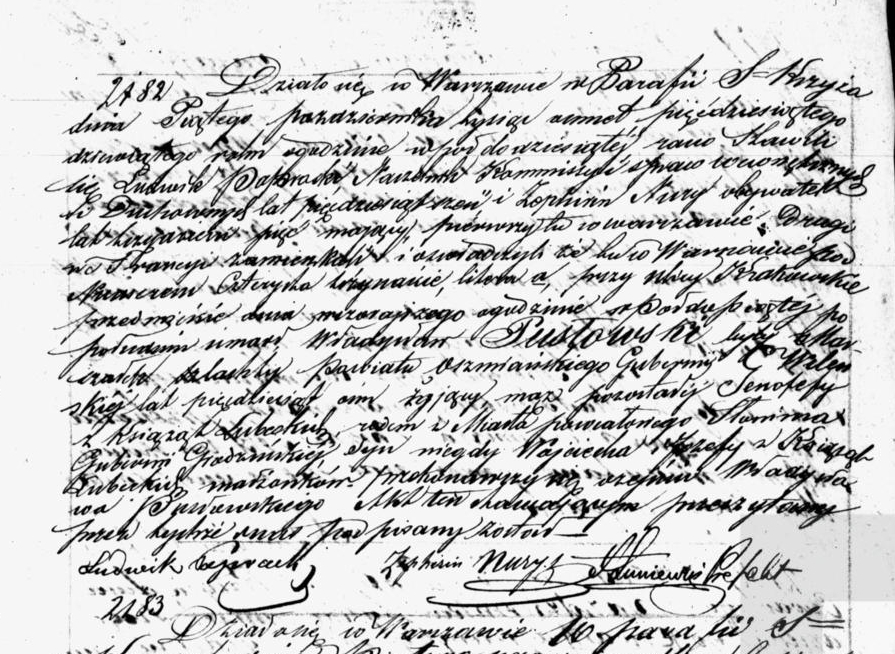 2182 Działo się w Warszawie w Parafii S= Krzyża
dnia Piątego października tysiąc osmset pięćdziesiątego
dziewiątego roku o godzinie w pół do dziesiątej rano Stawili
się Ludwik Naczelnik Kommissyi Spraw Wewnętrznych
i Duchownych lat pięćdziesiąt i Zephirin Nurys obywatel
lat trzydzieści pięć mający, pierwszy tu w Warszawie Drugi
we Francyi zamieszkali i oświadczyli że tu w Warszawie pod
Numerem Czterysta trzynaście litera a, przy ulicy Krakowskie
przedmieście dnia wczorajszego o godzinie w pół do piątej po
południu umarł Władysław Pusłowski były Mar-
szałek szlachty Powiatu Oszmiańskiego Gubernij Wileń
skiej lat pięćdziesiąt ośm żyjący mąż pozostałej Genofefy
z Książąt Lubeckich, rodem z Miasta powiatowego Słonima
Gubernij Grodzieńskiej syn niegdy Wojciecha Jozefy z Książąt
Lubeckich małżonków Przekonawszy się o zejściu Władysła-
wa Pusłowskiego Akt ten stawającym przeczytany
przez tychże i nas podpisany został
Ludwik Zephirin Nurys Prefekt
2183
Działo się w Warszawie W parafii S=